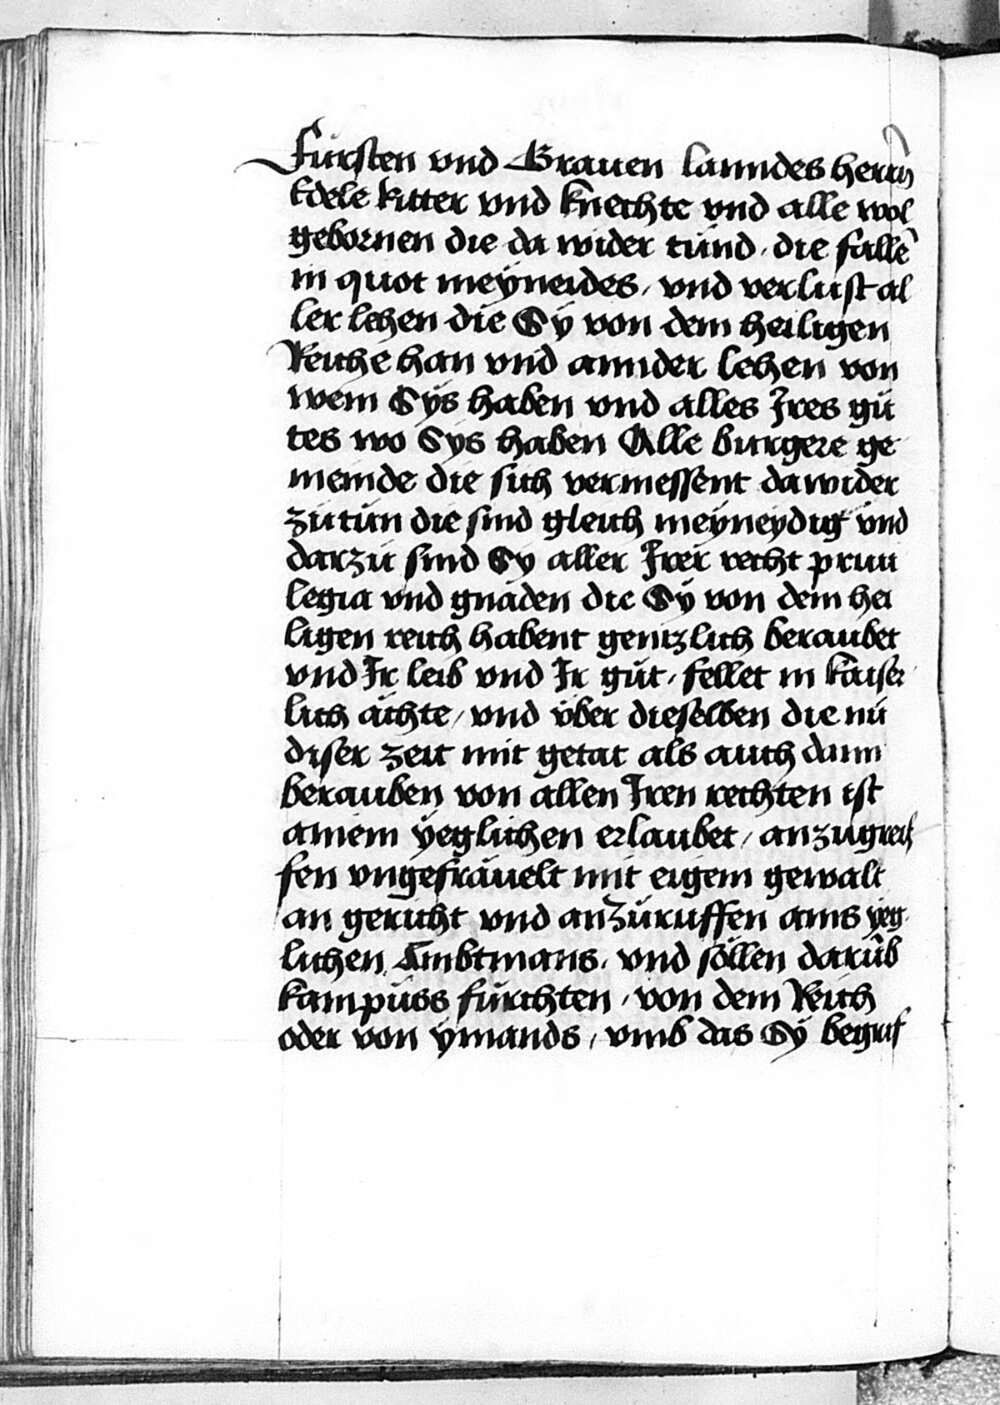 Fürsten vnd Grauen lanndes herrn
Edele Ritter vnd knechte vnd alle wol
gebornen die da wider tünd / die falle͂
in quot meyneides / vnd verlust al
ler lehen die Sÿ von dem heiligen
Reiche han vnd annder lehen von
wem Sÿs haben vnd alles Ires gü
tes wo Sÿs haben Alle burgere ge
meinde die sich vermessent dawider
zütün die sind gleich meyneydig vnd
darzü sind Sy aller Irer recht priui
legia vnd gnaden die Sÿ von dem hei
ligen reich habent gentzlich beraubet
vnd Ir leib vnd Ir güt / fellet in kaiser
lich ächte / vnd über dieselben die nü
diser zeit mit getat als auch dann
berauben von allen Iren rechten ist
ainem ÿeglichen erlaubet / anzugreif
fen vngefräuelt mit eigem gewalt
an gericht vnd anzüruffen ains ÿeg
lichen Ambtmans / vnd söllen darüb
kain püss fürchten / von dem Reich
oder von ÿmands / vmb das Sÿ begrif